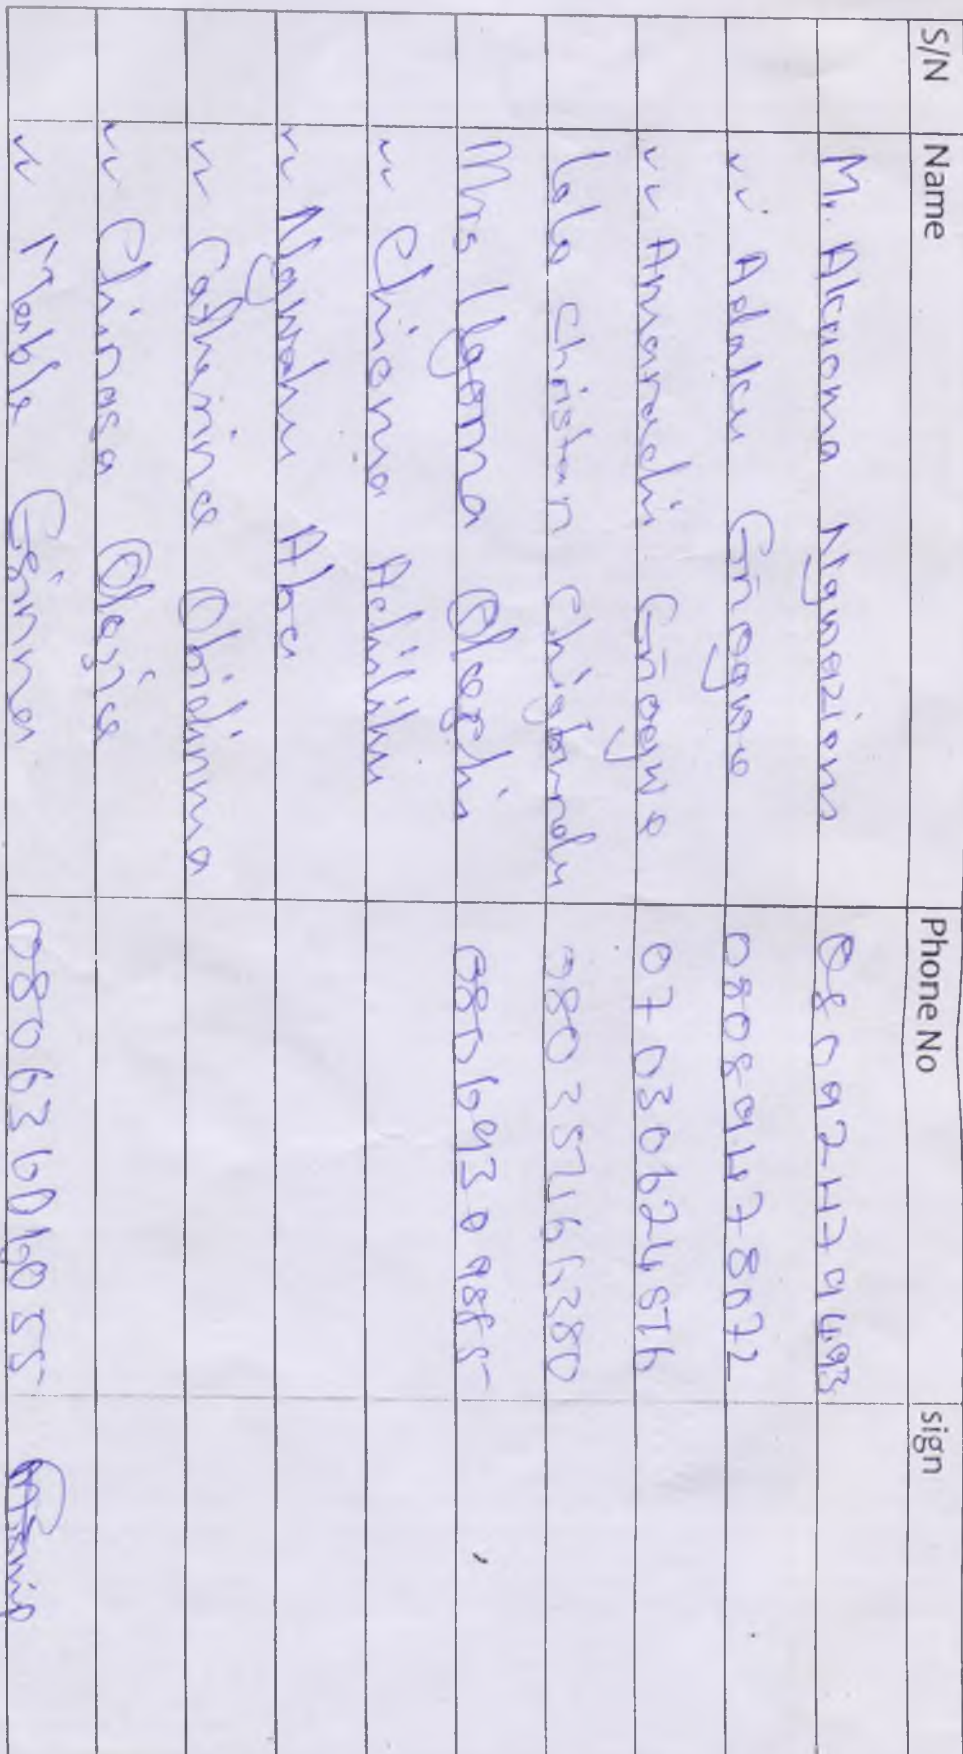 S/N Name Phone No sign
Mr. Akuoma Ngwaziom 08092479493
" Adaku Ginogwo 08089478072
" Amarachi Ginogwo 07030624576
Lolo Christian Chigbundu 08035716380
Mrs Ugoma Okoechi 08069309885
" Chioma Achilihu
" Ngwaku Aba
" Catherine Obidinma
" Chinasa Okojie
" Mable Ginna 08063601055